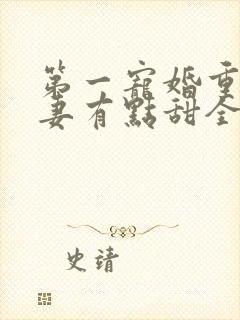 第一寵婚重
妻有點甜全
史靖